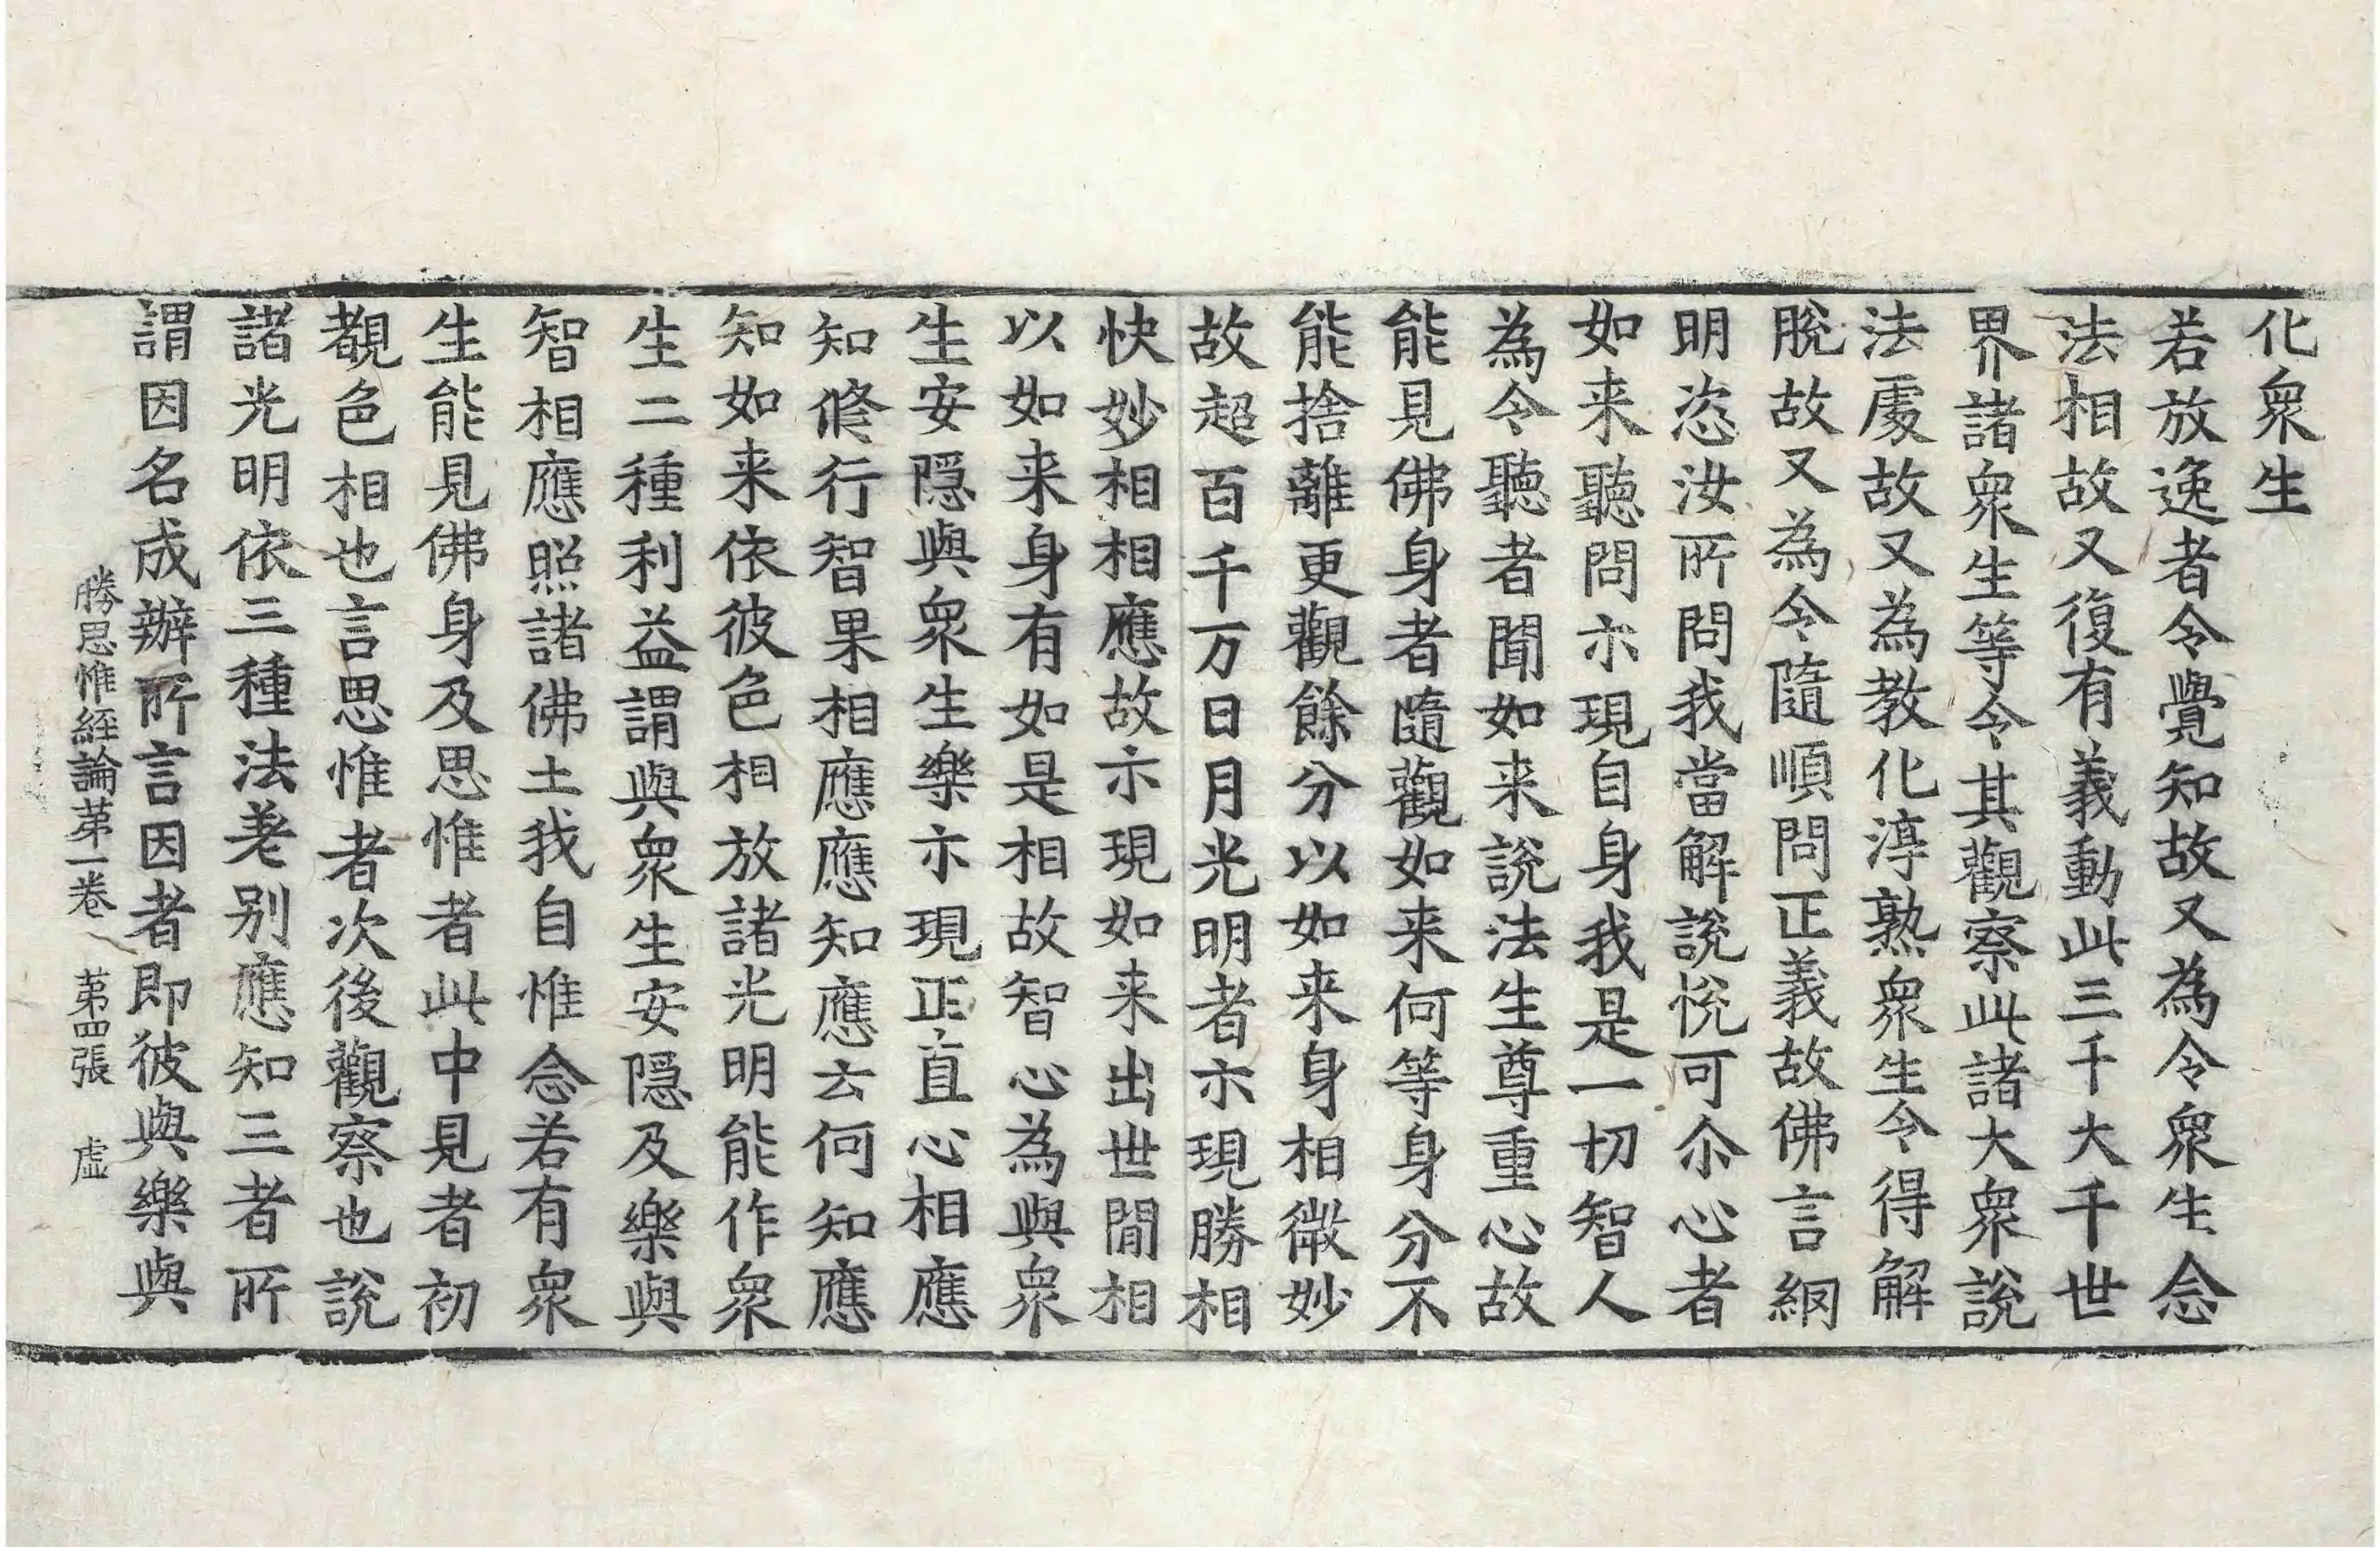 化衆生
若放逸者令覺知故又為令衆生念
法相故又復有義動此三千大千世
界諸衆生等令其觀察此諸大衆說
法處故又為教化淳熟衆生令得解
脫故又為令隨順問正義故佛言網
明恣汝所問我當解說悅可尒心者
如来聽問示現自身我是一切智人
為令聽者聞如来說法生尊重心故
能見佛身者隨觀如来何等身分不
能捨離更觀餘分以如来身相微妙
故超百千万日月光明者示現勝相
快妙相相應故示現如来出世閒相
以如来身有如是相故智心為與衆
生安隠與衆生樂示現正直心相應
知修行智果相應應知應云何知應
知如来依彼色相放諸光明能作衆
生二種利益謂與衆生安隠及樂與
智相應照諸佛土我自惟念若有衆
生能見佛身及思惟者此中見者初
覩色相也言思惟者次後觀察也說
諸光明依三種法差别應知三者所
謂因名成辦所言因者即彼與樂與
勝思惟經論苐一卷 苐四張 虛